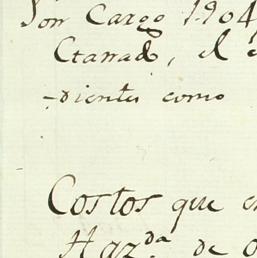 Son Cargo 1.904
Ctanad, el
-dientes como
Costos que en
Haz.da de